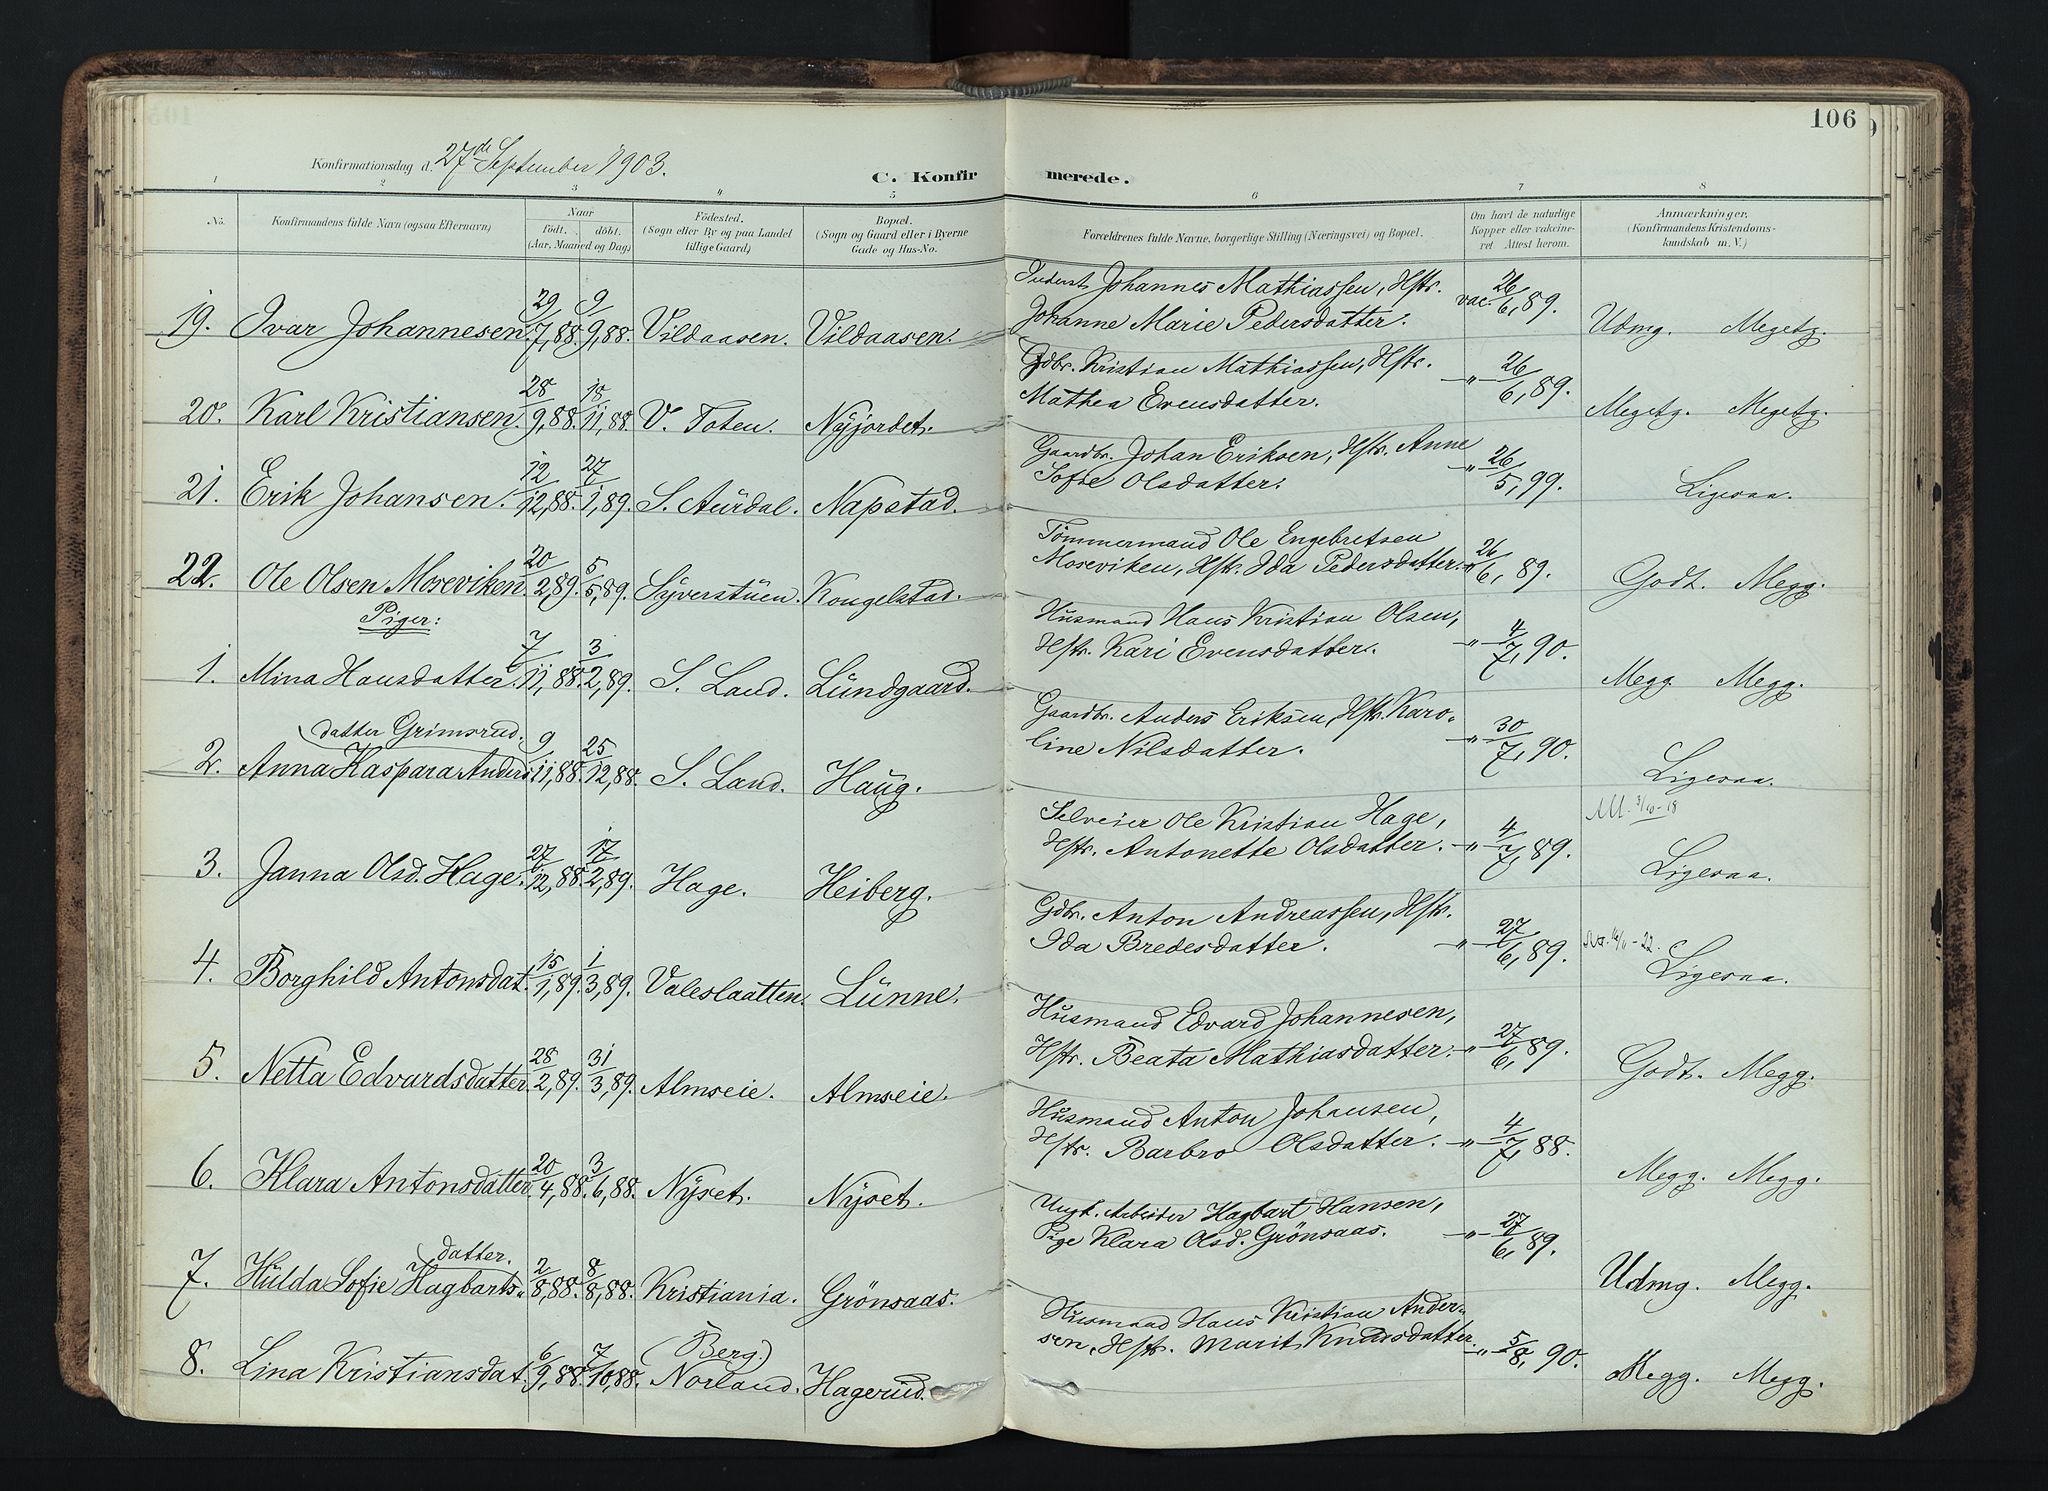 106
Konfirmationsdag d. 27de September 1903.
C. Konfirmerede.
1 2 3 4 5 6 7 8
No. Konfirmandens fulde Navn (ogsaa Efternavn) Naar født. døbt. (Aar, Maaned og Dag) Fødested. (Sogn eller By og paa Landet tillige Gaard) Bopæl. (Sogn og Gaard eller i Byerne Gade og Hus-No. Forældrenes fulde Navne, borgerlige Stilling (Næringsvei) og Bopæl. Om havt de naturlige Kopper eller vaccineret Attest herom. Anmærkninger. (Konfirmandens Kristendomskundskab m. V.)
19. Ivar Johannesen. 29/7, 88. 9/9, 88. Vildaasen. Vildaasen. Johannes Mathiassen, Hstr. Johanne Marie Pedersdatter. vac. 26/6, 89. Udmg. Megetg.
20. Karl Kristiansen. 28/9, 88. 18/11, 88. V. Toten. Nyjordet. Gdbr. Kristian Mathiassen, Hstr. Mathea Evensdatter. -"- 26/6, 89. Megetg. Megetg.
21. Erik Johansen. 12/12, 88. 27/1, 89. S. Aurdal. Napstad. Gaardbr. Johan Eriksen, Hstr. Anne Sofie Olsdatter. " 26/5, 99. Ligesaa.
22. Ole Olsen Moseviken 20/2, 89. 5/5, 89. Syverstuen. Kongelstad. Tømmermand Ole Engebretsen Moseviken, Hstr. Ida Pedersdatter. " 26/6, 89. Godt. Megg.
Piger:
1. Mina Hansdatter. 7/11, 88. 3/2, 89. S. Land. Lundgaard. Husmand Hans Kristian Olsen, Hstr. Kari Evensdatter. -"- 4/7, 90. Megg. Megg.
2. Anna Kaspara Andersdatter Grimsrud. 9/11, 88. 25/12, 88. S. Land. Haug. Gaardbr. Anders Eriksen, Hstr. Karoline Nilsdatter. -"- 30/7, 90. Ligesaa.
3. Janna Olsd. Hage. 27/12, 88. 17/2, 89. Hage. Heiberg. Selveier Ole Kristian Hage, Hstr. Antonette Olsdatter. -"- 4/7, 89. 3/10-18 Ligesaa.
4. Borghild Antonsdat. 15/1, 89. 1/3, 89. Valeslaatten. Lunne. Gdbr. Anton Andreassen, Hstr. Ida Bredesdatter. -"- 27/6, 89. Ligesaa.
5. Netta Edvardsdatter 28/2, 89. 31/3, 89. Almseie. Almseie. Husmand Edvard Johannesen, Hstr. Beata Mathiasdatter. -"- 27/6, 89. Godt. Megg.
6. Klara Antonsdatter. 20/4, 88. 3/6, 88. Nyset. Nyset. Husmand Anton Johansen, Hstr. Barbro Olsdatter. -"- 4/7, 88. Megg. Megg.
7. Hulda Sofie Hagbartsdatter. 2/8, 88. 8/8, 88. Kristiania. Grønsaas. Ungk. Arbeider Hagbart Hansen, Pige Klara Olsd. Grønsaas. -"- 27/6, 89. Udmg. Megg.
8. Lina Kristiansdat. 6/9, 88. 7/10, 88. (Berg.) Norland. Hagerud. Husmand Hans Kristian Andersen, Hstr. Marit Knudsdatter. -"- 5/8, 90. Megg. Megg.